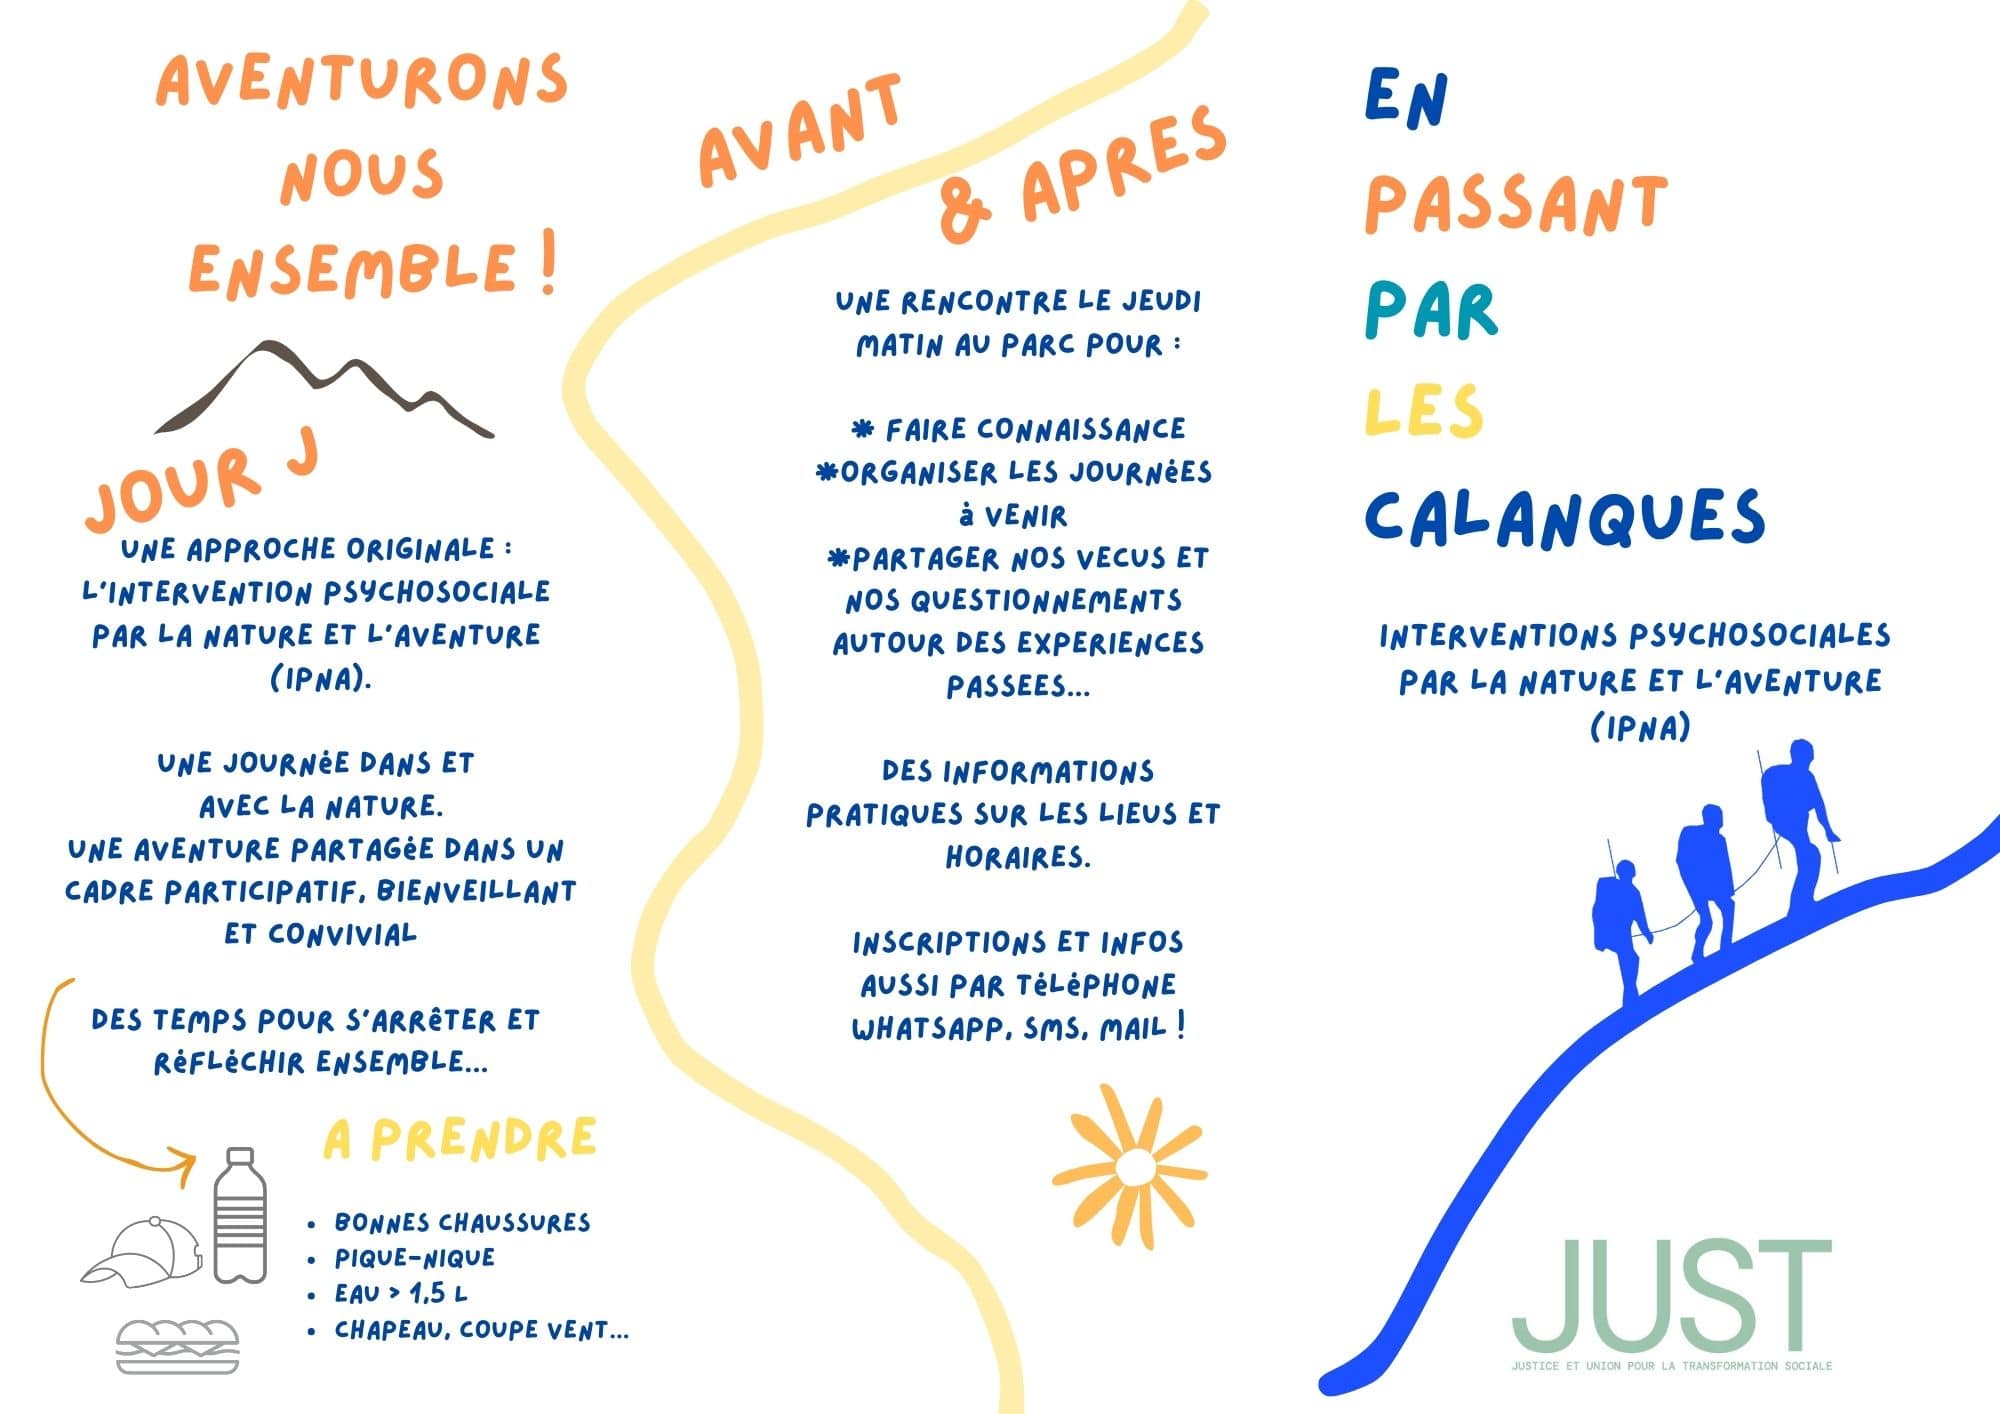 AVENTURONS
NOUS
ENSEMBLE !
JOUR J
UNE APPROCHE ORIGINALE :
L'INTERVENTION PSYCHOSOCIALE
PAR LA NATURE ET L'AVENTURE
(IPNA).
UNE JOURNéE DANS ET
AVEC LA NATURE.
UNE AVENTURE PARTAGéE DANS UN
CADRE PARTICIPATIF, BIENVEILLANT
ET CONVIVIAL
DES TEMPS POUR S'ARRêTER ET
RéFLéCHIR ENSEMBLE...
A PRENDRE
• BONNES CHAUSSURES
• PIQUE-NIQUE
• EAU > 1,5 L
• CHAPEAU, COUPE VENT...
AVANT
& APRES
UNE RENCONTRE LE JEUDI
MATIN AU PARC POUR :
* FAIRE CONNAISSANCE
*ORGANISER LES JOURNéES
à VENIR
*PARTAGER NOS VECUS ET
NOS QUESTIONNEMENTS
AUTOUR DES EXPERIENCES
PASSEES...
DES INFORMATIONS
PRATIQUES SUR LES LIEUS ET
HORAIRES.
INSCRIPTIONS ET INFOS
AUSSI PAR TéLéPHONE
WHATSAPP, SMS, MAIL !
EN
PASSANT
PAR
LES
CALANQUES
INTERVENTIONS PSYCHOSOCIALES
PAR LA NATURE ET L'AVENTURE
(IPNA)
JUST
JUSTICE ET UNION POUR LA TRANSFORMATION SOCIALE